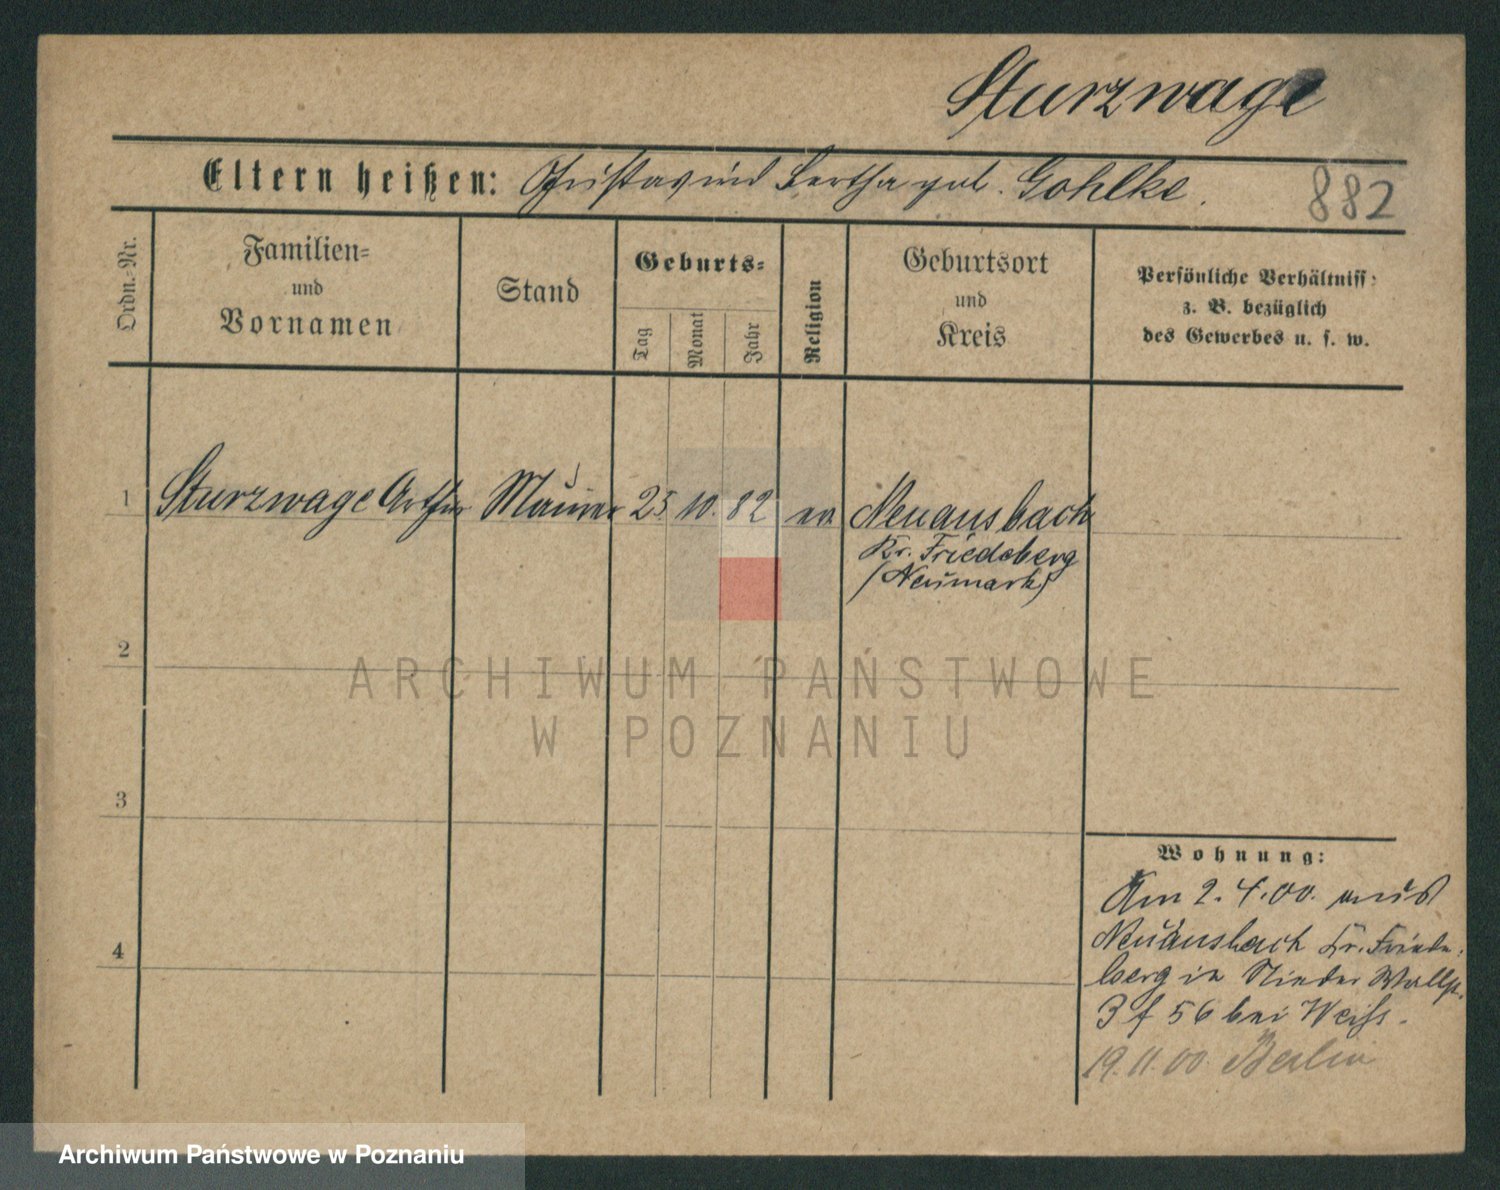 Sturzwage
Eltern heißen: Gustav und Bertha geb. Gohlke.
882
Ordn.-Nr.
Familien=
und
Vornamen
Stand
Geburts=
Tag
Monat
Jahr
Religion
Geburtsort
und
Kreis
Persönliche Verhältniss:
z. B. bezüglich
des Gewerbes u. s. w.
1 Sturzwage Arthur Maurer 23 10. 82 ev Neuansbach
Kr. Friedeberg
(Neumark)
2
3
4
Wohnung:
Am 2. 4. 00. aus
Neuansbach Kr. Friede-
berg in Nieder Wallstr.
3 f 56 bei Weiß.
19.11.00 Berlin
ARCHIWUM PAŃSTWOWE
W POZNANIU
Archiwum Państwowe w Poznaniu